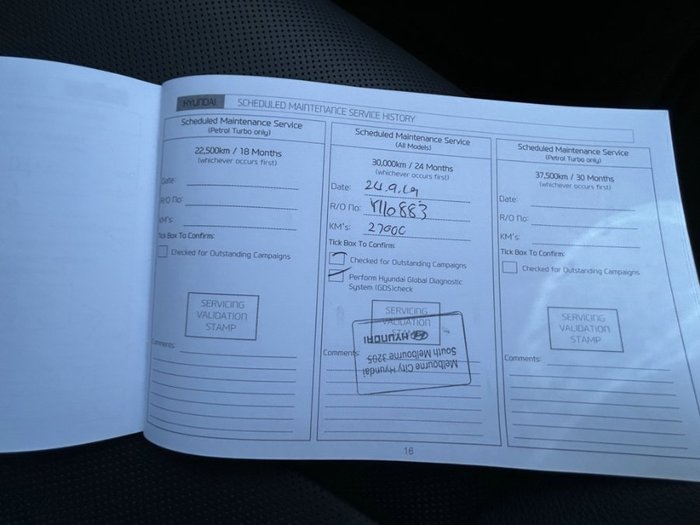 HYUNDAI SCHEDULED MAINTENANCE SERVICE HISTORY
Scheduled Maintenance Service
(Petrol Turbo only)
22,500km / 18 Months
(whichever occurs first)
Date:
R/O No:
KM's:
Tick Box To Confirm:
Checked for Outstanding Campaigns
SERVICING
VALIDATION
STAMP
Comments:
Scheduled Maintenance Service
(All Models)
30,000km / 24 Months
(whichever occurs first)
Date: 24.9.19
R/O No: Y110883
KM's: 27000
Tick Box To Confirm:
Checked for Outstanding Campaigns
Perform Hyundai Global Diagnostic
System (GDS)check
SERVICING
VALIDATION
STAMP
Comments:
Melbourne City Hyundai
South Melbourne 3205
HYUNDAI
Scheduled Maintenance Service
(Petrol Turbo only)
37,500km / 30 Months
(whichever occurs first)
Date:
R/O No:
KM's:
Tick Box To Confirm:
Checked for Outstanding Campaigns
SERVICING
VALIDATION
STAMP
Comments:
16